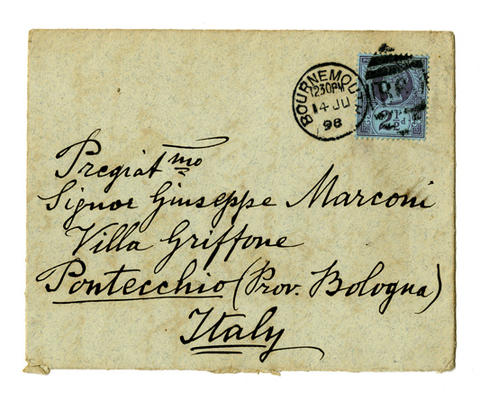 BOURNEMOUTH
1230PM
14 JU
98
Pregiat mo
Signor Giuseppe Marconi
Villa Griffone
Pontecchio (Prov. Bologna)
Italy